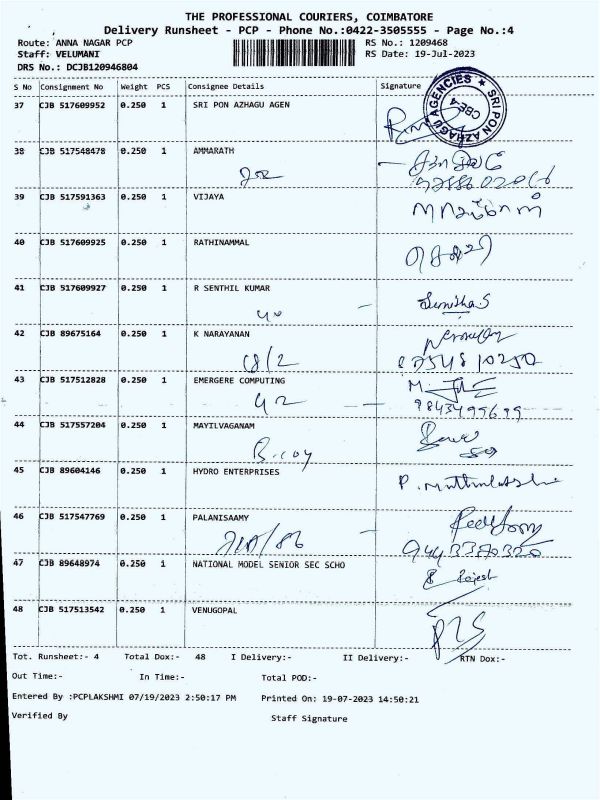 THE PROFESSIONAL COURIERS, COIMBATORE
Delivery Runsheet - PCP - Phone No.:0422-3505555 - Page No.:4
Route: ANNA NAGAR PCP RS No.: 1209468
Staff: VELUMANI RS Date: 19-Jul-2023
DRS No.: DCJB120946804
S No Consignment No Weight PCS Consignee Details Signature
37 CJB 517609952 0.250 1 SRI PON AZHAGU AGEN
SRI PON AZHAGU AGENCIES ★ CBE-4
38 CJB 517548478 0.250 1 AMMARATH
39 CJB 517591363 0.250 1 VIJAYA
40 CJB 517609925 0.250 1 RATHINAMMAL
41 CJB 517609927 0.250 1 R SENTHIL KUMAR
40 Sunitha.S
42 CJB 89675164 0.250 1 K NARAYANAN
18/2 8754810250
43 CJB 517512828 0.250 1 EMERGERE COMPUTING
42 9843499699
44 CJB 517557204 0.250 1 MAYILVAGANAM
45 CJB 89604146 0.250 1 HYDRO ENTERPRISES
46 CJB 517547769 0.250 1 PALANISAAMY
9443380320
47 CJB 89648974 0.250 1 NATIONAL MODEL SENIOR SEC SCHO
Rajesh
48 CJB 517513542 0.250 1 VENUGOPAL
Tot. Runsheet:- 4 Total Dox:- 48 I Delivery:- II Delivery:- RTN Dox:-
Out Time:- In Time:- Total POD:-
Entered By :PCPLAKSHMI 07/19/2023 2:50:17 PM Printed On: 19-07-2023 14:50:21
Verified By Staff Signature